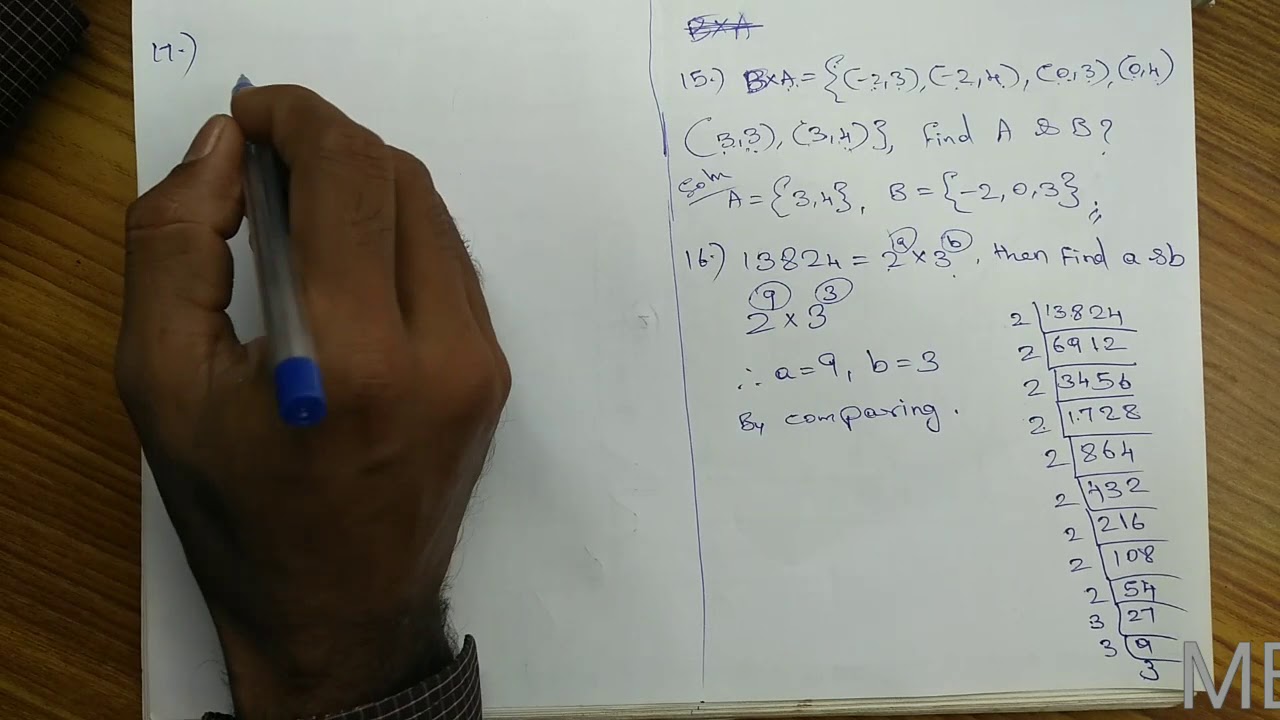 17.)
B×A
15.) B×A = {(-2,3), (-2,4), (0,3), (0,4)
(3,3), (3,4)}, find A & B?
Soln
A = {3,4}, B = {-2, 0, 3}.
16.) 13824 = 2^a × 3^b, then find a & b
2^9 × 3^3
∴ a=9, b=3
By comparing.
2 | 13824
2 | 6912
2 | 3456
2 | 1728
2 | 864
2 | 432
2 | 216
2 | 108
2 | 54
3 | 27
3 | 9
3
ME